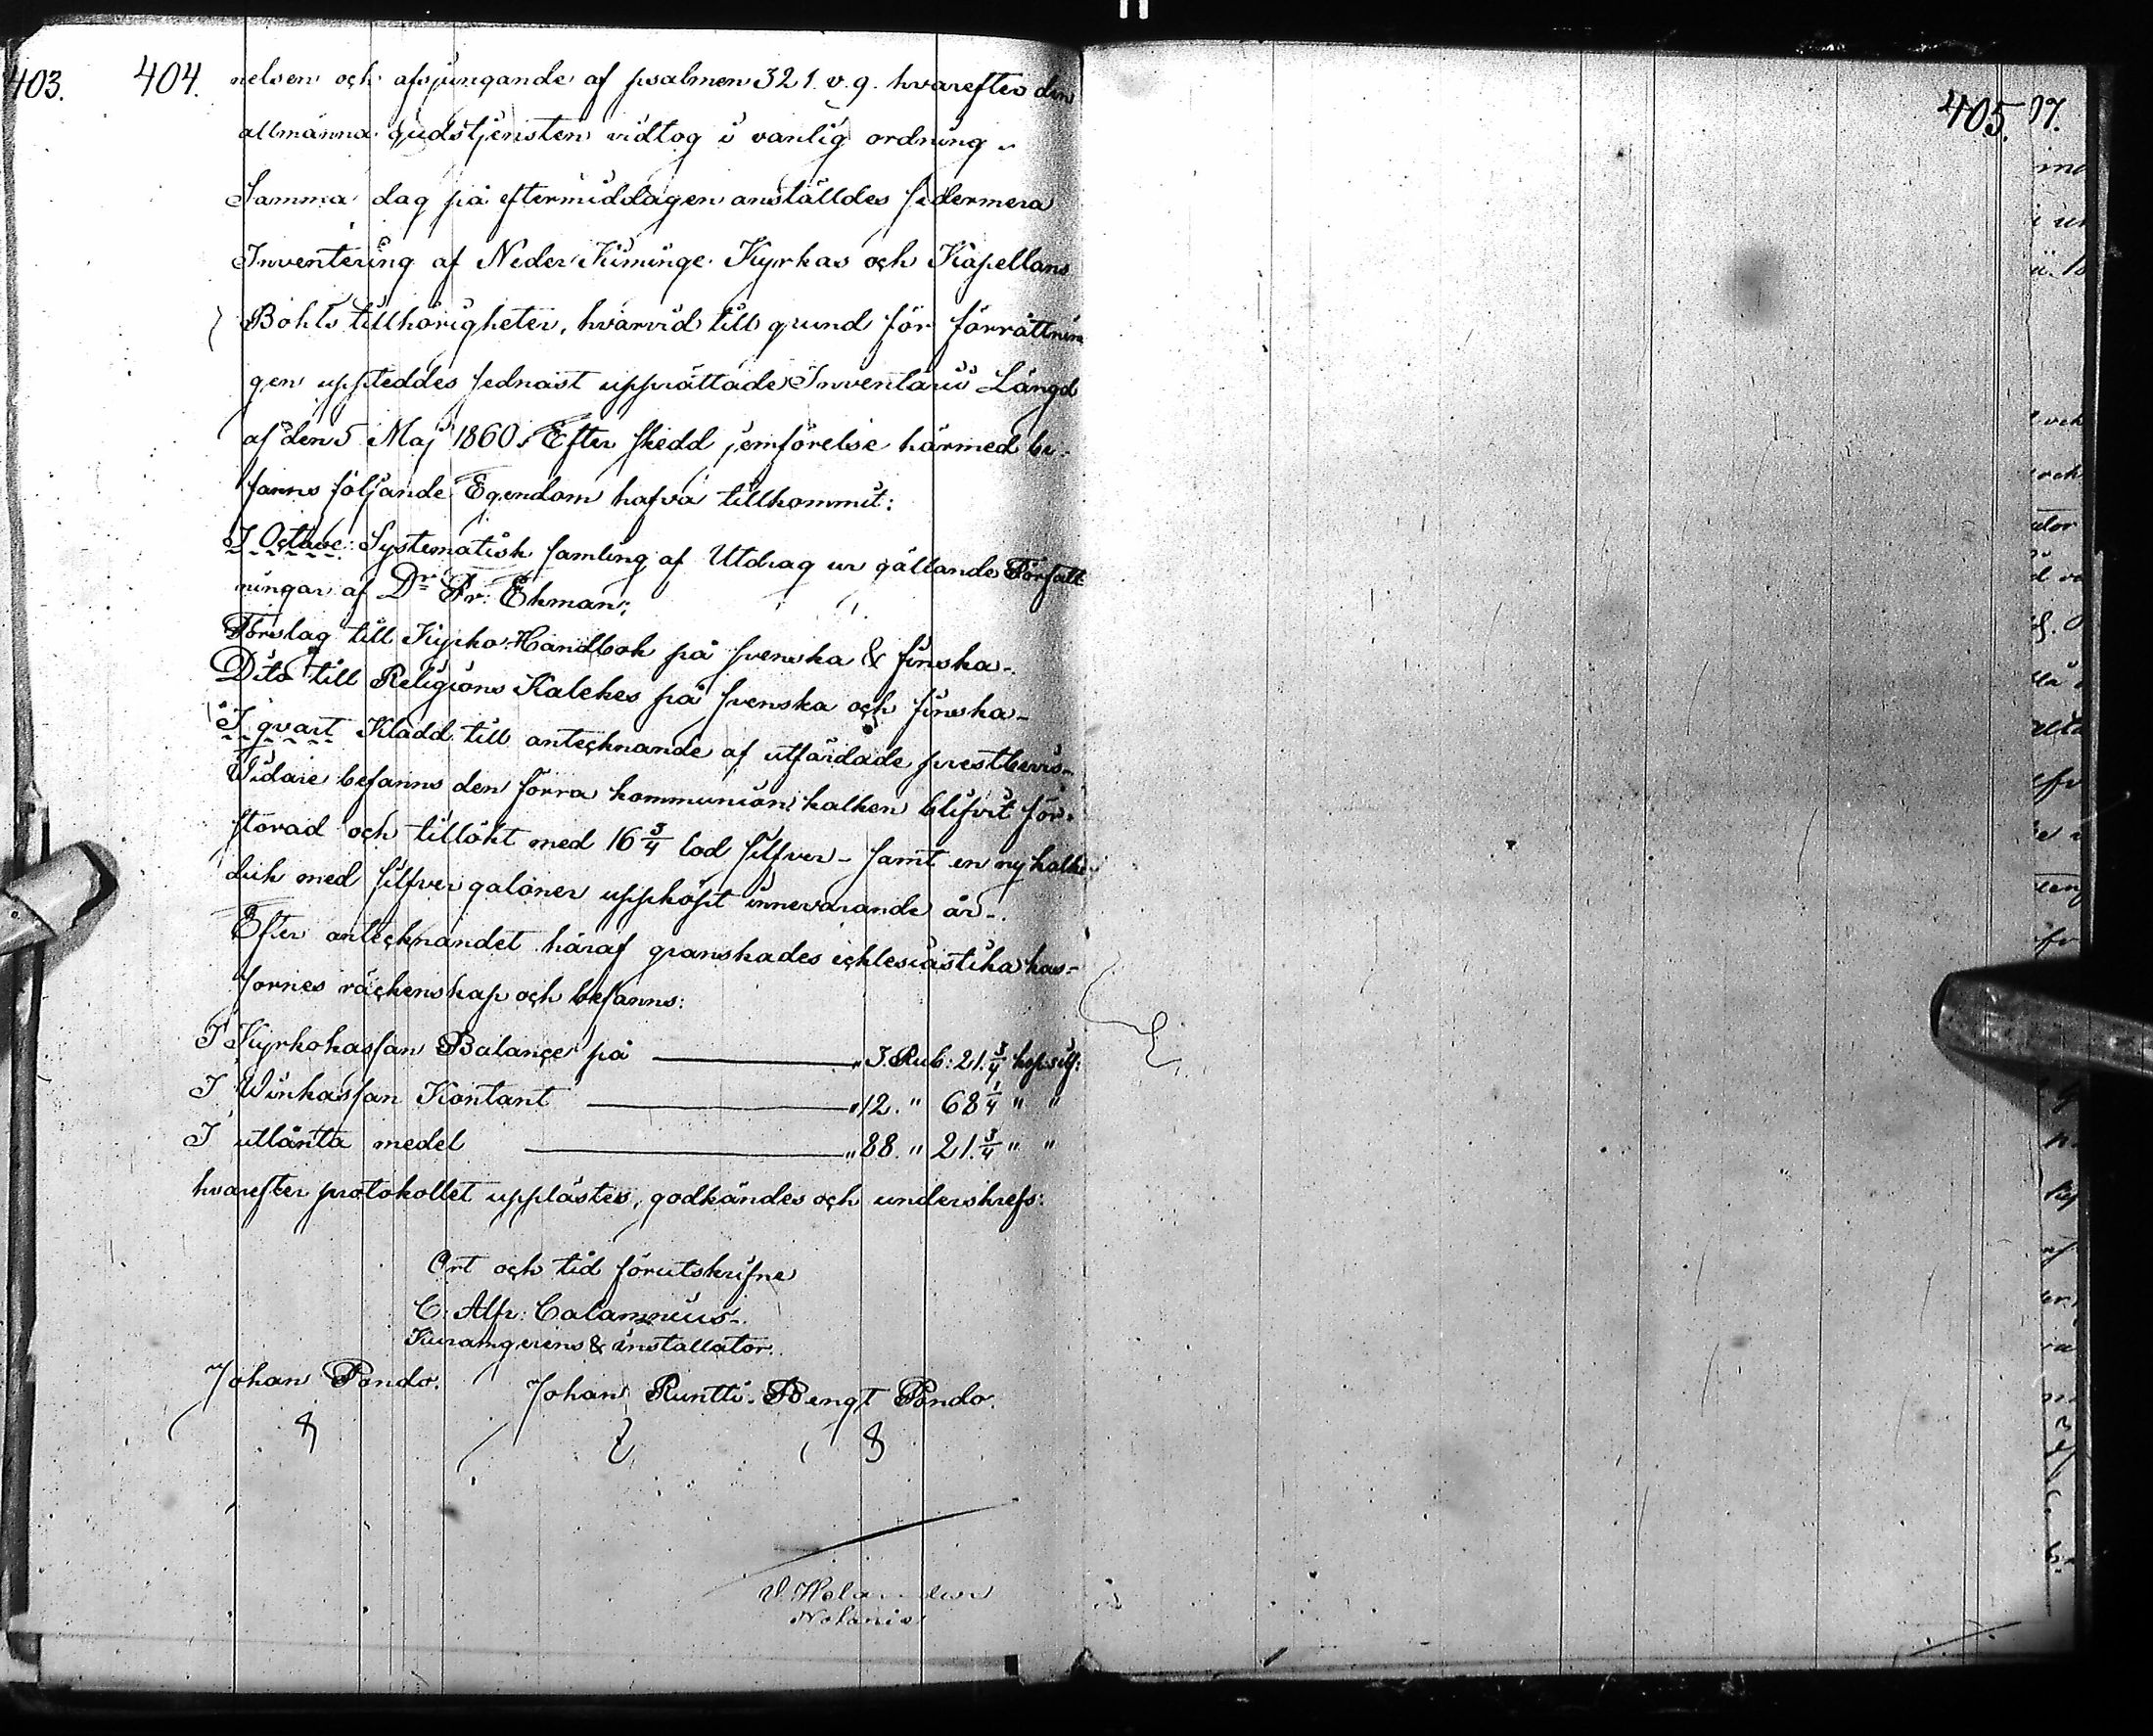 403. 404. nelsen och afsjungande af psalmen 321. v. 9. hvarefter den
allmänna gudstjensten vidtog i vanlig ordning.
Samma dag på eftermiddagen anställdes sedermera
Inventering af Neder Kiminge Kyrkas och Kapellans
Bohls tillhörigheter, hvarvid till grund för förrättnin
gen uppteddes sednast upprättade Inventarii Längd
af den 5 Maj 1860. Efter skedd jemförelse härmed be-
fanns följande Egendom hafva tillkommit:
I Octave: Systematisk samling af Utdrag ur gällande Författ
ningar af Dr Fr: Ekman;
Förslag till Kyrko-Handbok på svenska & finska-.
Dito till Religions Katekes på svenska och finska-
I qvart Kladd till antecknande af utfärdade prestbevis-
Widare befanns den förra kommunion kalken blifvit för-
storad och tillökt med 16 3/4 lod silfver - samt en ny kalk
duk med silfver galoner uppköpt innevarande år-.
Efter antecknandet häraf granskades ecklesiastika kas-
sornes räckenskap och befanns:
I Kyrkokassan Balance på " 3. Rub: 21. 3/4 kop. silf:
I Winkassan Kontant " 12. " 68 1/4 " "
I utlånta medel " 88. " 21. 3/4 " "
hvarefter protokollet upplästes, godkändes och underskrefs:
Ort och tid förutskrifne
C: Alfr: Calamnius-.
Kuramgerens & installator.
Johan Pondo. Johan Runtti. Bengt Pondo.
Notarie
405. 07.